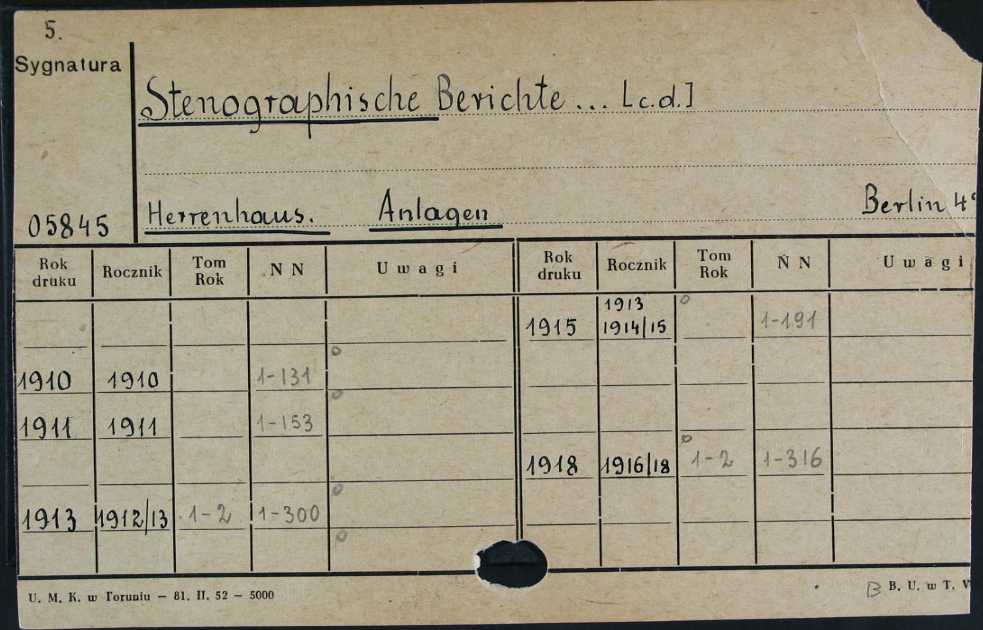 5.
Sygnatura
Stenographische Berichte ... [c.d.]
05845
Herrenhaus. Anlagen Berlin 4°
Rok druku Rocznik Tom Rok N N Uwagi Rok druku Rocznik Tom Rok N N Uwagi
1915 1913 1914/15 1-191
1910 1910 1-131
1911 1911 1-153
1918 1916/18 1-2 1-316
1913 1912/13 1-2 1-300
U. M. K. w Toruniu — 81. II. 52 — 5000
B B. U. w T. V